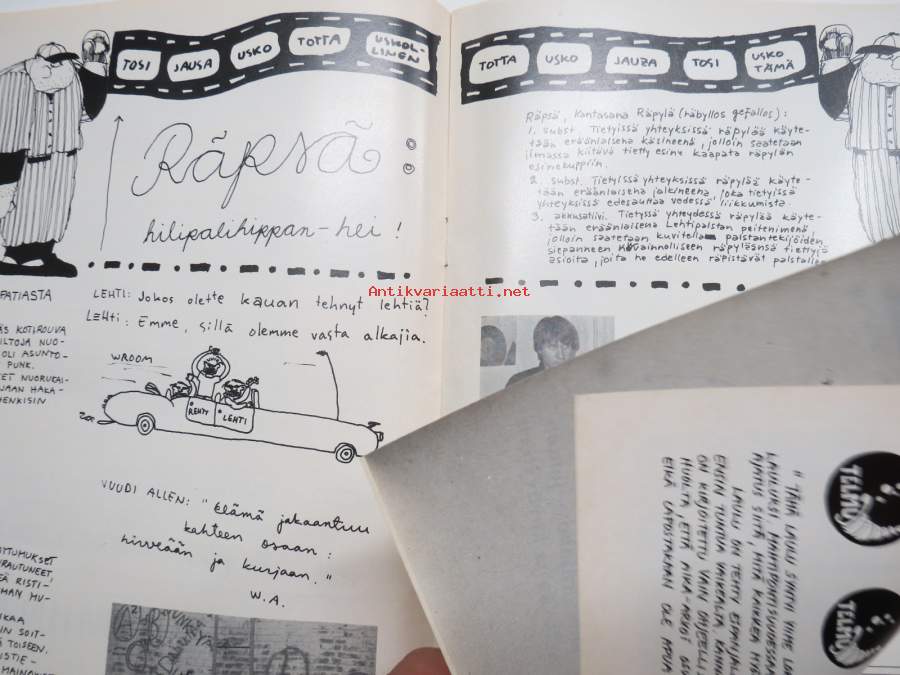 TOSI JAUSA USKO TOTTA USKOL-
LINEN
TOTTA USKO JAUZA TOSI USKO
TÄMÄ
Räpsä:
hilipalihippan-hei!
PATIASTA
KOTIROUVA
ILTOJA NUO-
OLI ASUNTO-
PUNK.
ET NUORUKAI-
JAAN HAKA-
HENKISIN
LEHTI: Jokos olette kauan tehnyt lehtiä?
LEHTI: Emme, sillä olemme vasta alkajia.
WROOM
REHTY LEHTI
VUUDI ALLEN: "Elämä jakaantuu
kahteen osaan:
hirveään ja kurjaan."
W.A.
TTUMUKSET
RAUTUNEET
EÄ RISTI-
MAN MU-
KAA
IN SOIT-
Ä TOISEEN.
ISTIE-
MAINOW
Räpsä, Kantasana Räpylä (häbyllos gefallos):
1. subst. Tietyissä yhteyksissä räpylää käyte-
tään eräänlaisena käsineenä, jolloin saatetaan
ilmassa kiitävä tietty esine kaapata räpylän
esinekuppiin.
2. subst. Tietyissä yhteyksissä räpylää käyte-
tään eräänlaisena jalkineena, joka tietyissä
yhteyksissä edesauttaa vedessä liikkumista.
3. akkusatiivi. Tietyssä yhteydessä räpylää käyte-
tään eräänlaisena Lehtipalstan peitenimenä,
jolloin saatetaan kuvitella palstantekijöiden
siepanneen räpyläänsä tiettyjä
asioita, joita he edelleen räpistävät palstalle
Antikvariaatti.net
"TÄMÄ LAULU SYNTYI VIIME
LAULUKSI, MAHTIPONTISUUDESSAAN
AJATUS SIITÄ, MITÄ KAIKKEA
LAULU ON TEHTY
ENSIN TUNTUA VAIKEALTA,
ON KIRJOITETTU VAIN
HUOLTA, ETTÄ AIKA-ARVOT
EIKÄ LAPOSTAKAAN OLE APUA